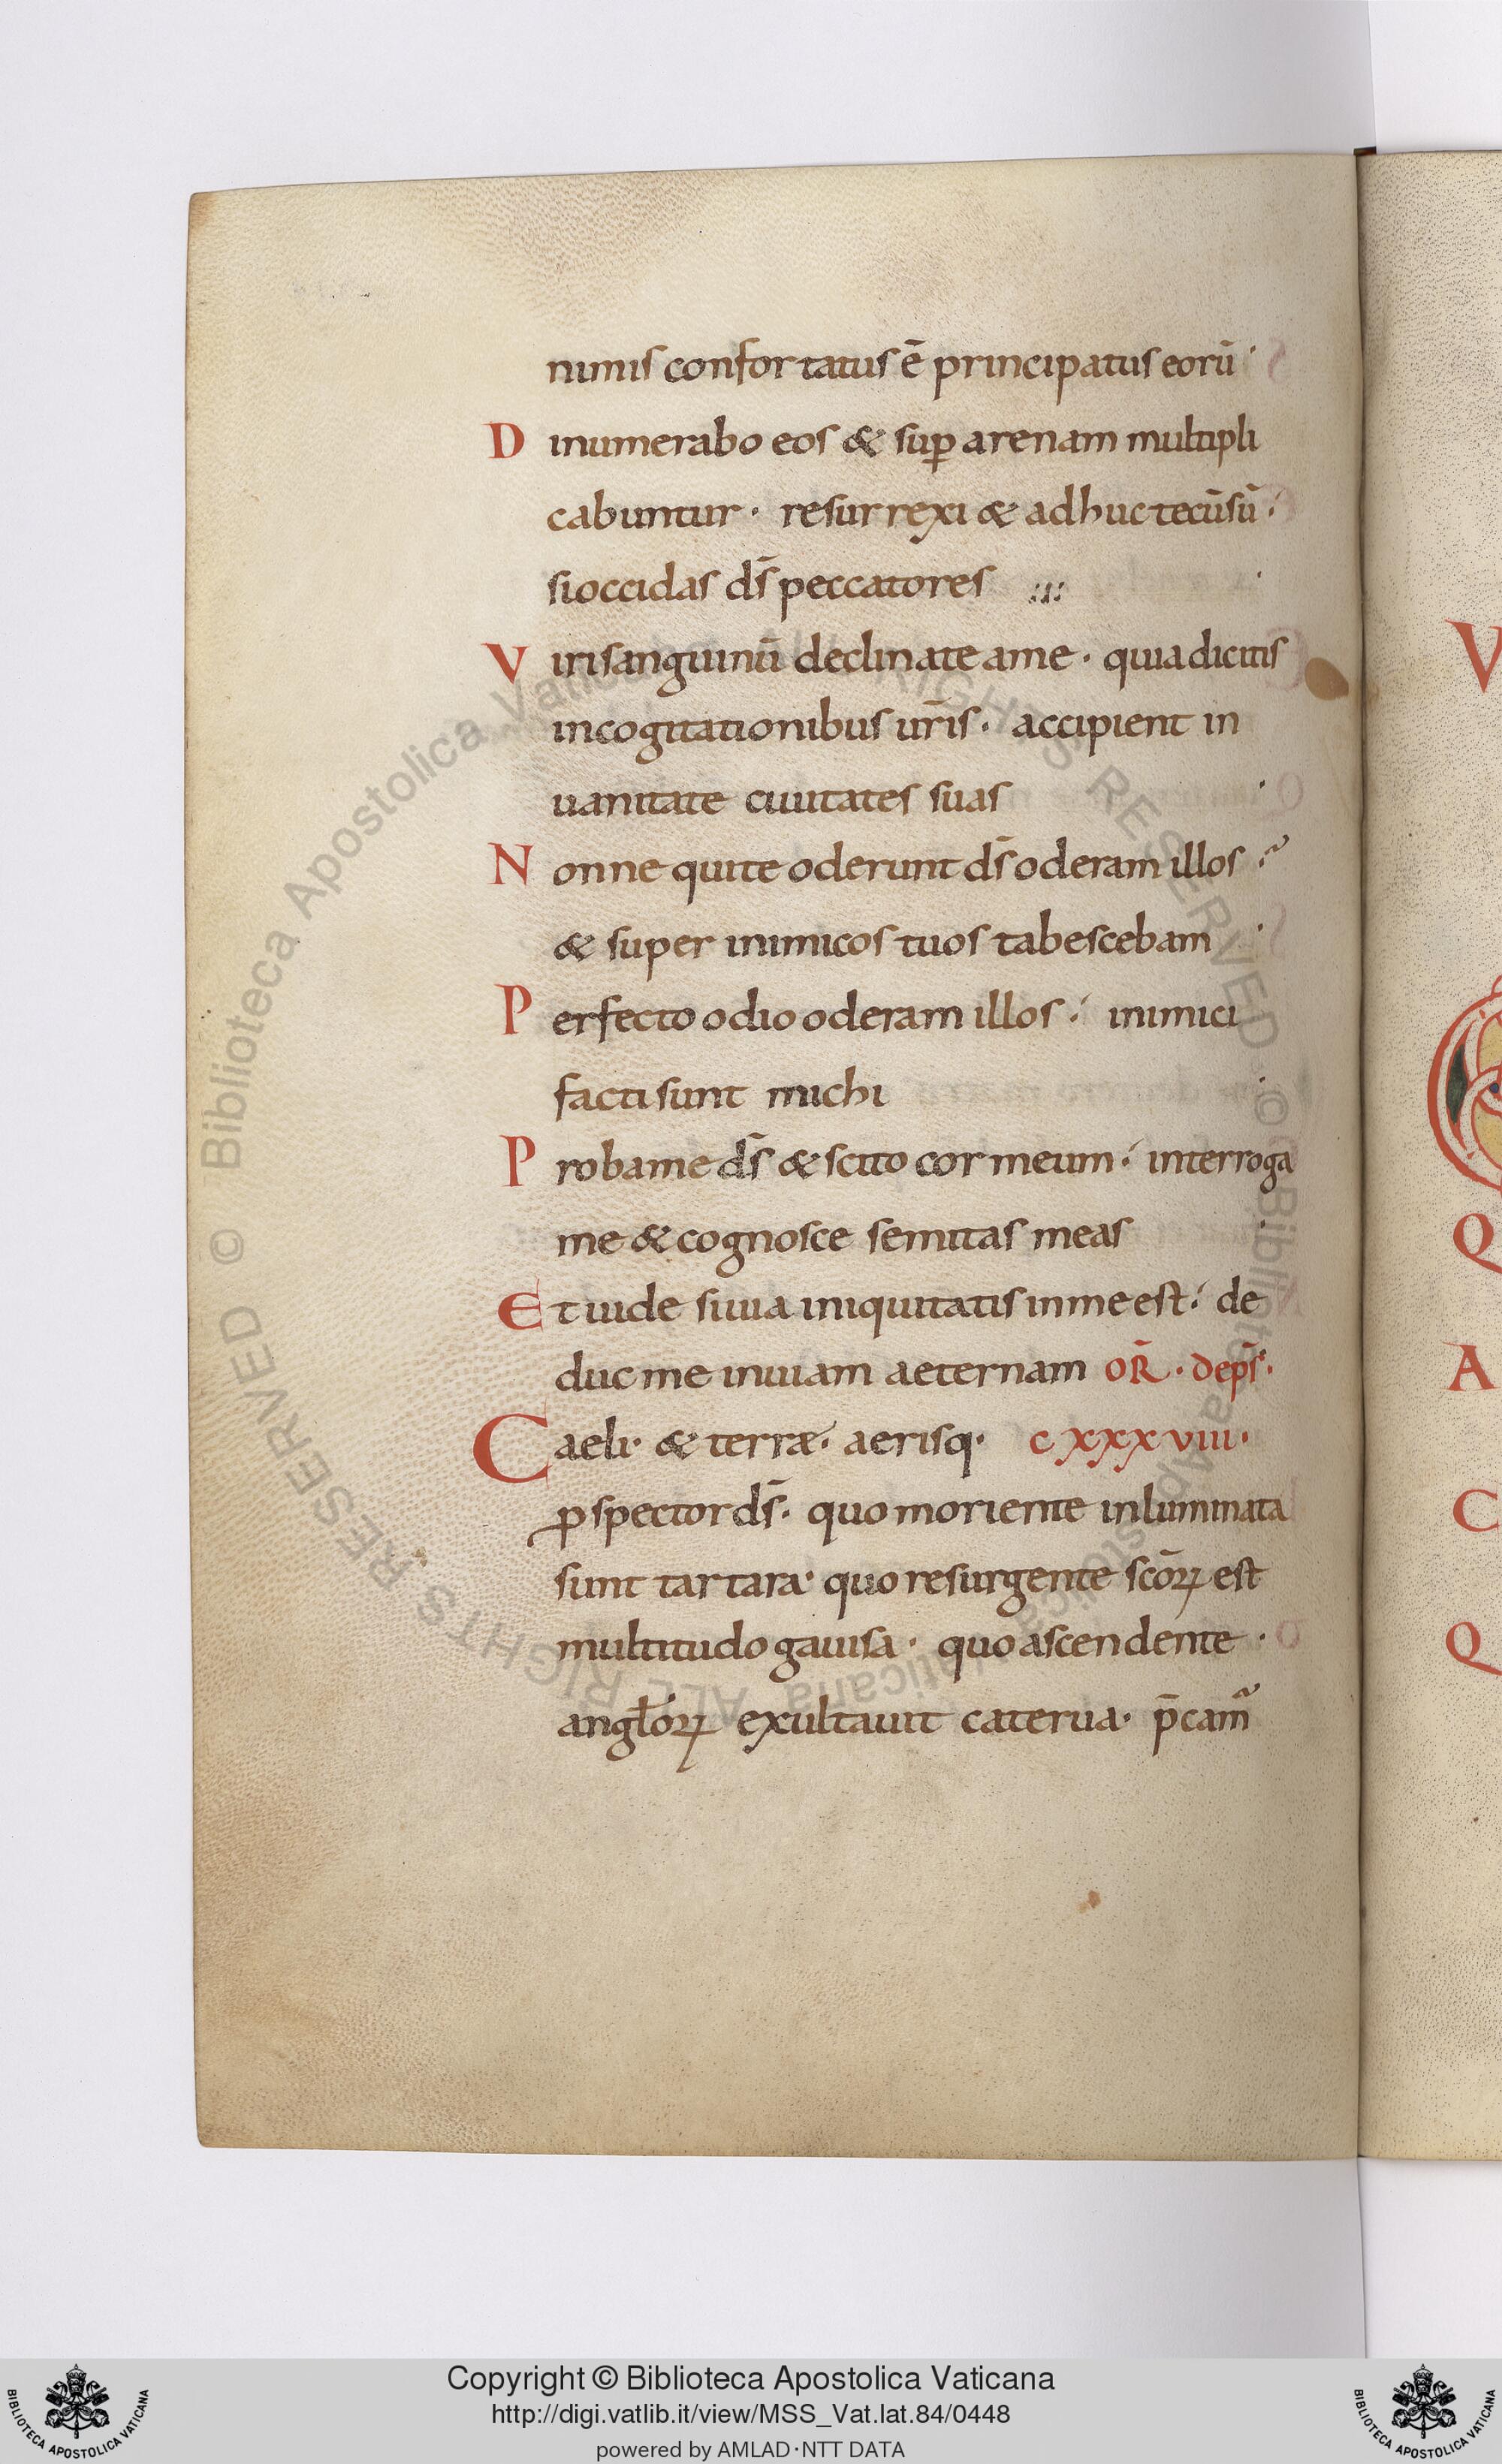 nimis confortatus ē principatus eorū·
D inumerabo eos & sup̲ arenam multipli
cabuntur· resurrexi & adhuc tecū sū·
si occidas ds̄ peccatores
V iri sanguinū declinate a me· quia dicitis
in cogitationibus ur̄is· accipient in
uanitate ciuitates suas
N onne qui te oderunt ds̄ oderam illos
& super inimicos tuos tabescebam
P erfecto odio oderam illos· inimici
facti sunt michi
P roba me ds̄ & scito cor meum· interroga
me & cognosce semitas meas
E t uide si uia iniquitatis in me est· de
duc me in uiam aeternam OR̄· de ps̄·
C aeli· & terræ· aerisq· cxxxviii·
ꝓspector ds̄· quo moriente inluminata
sunt tartara· quo resurgente scōꝝ est
multitudo gauisa· quo ascendente·
angłoꝝ exultauit caterua· p̄cam̄
V
Q
A
C
Q
Copyright © Biblioteca Apostolica Vaticana
http://digi.vatlib.it/view/MSS_Vat.lat.84/0448
powered by AMLAD·NTT DATA
BIBLIOTECA APOSTOLICA VATICANA
BIBLIOTECA APOSTOLICA VATICANA
© Biblioteca Apostolica Vaticana ALL RIGHTS RESERVED © Biblioteca Apostolica Vaticana ALL RIGHTS RESERVED